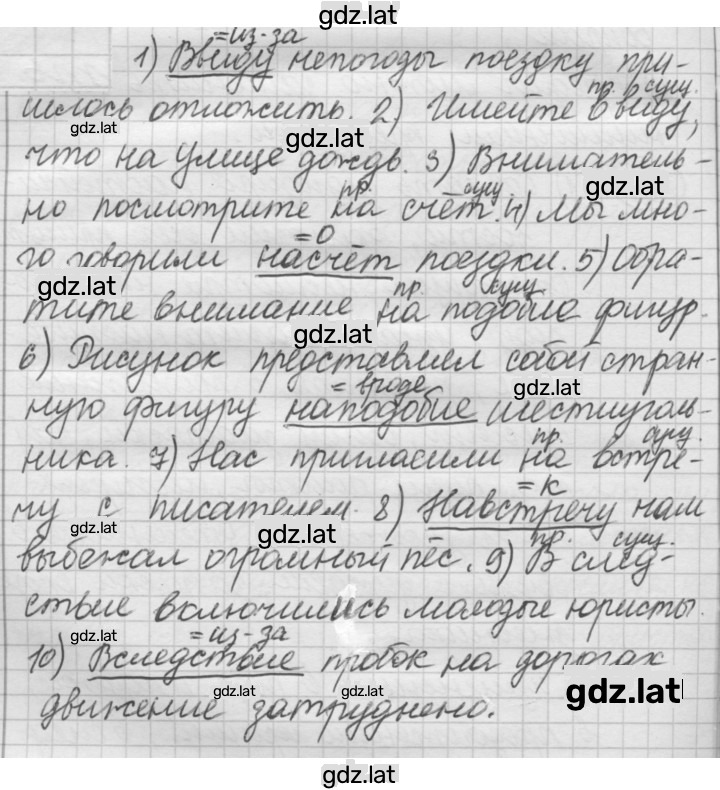 gdz.lat
=из-за
1) Ввиду непогоды поездку при-
пр. сущ.
шлось отложить. 2) Имейте в виду,
gdz.lat gdz.lat
что на улице дождь. 3) Вниматель-
пр. сущ. gdz.lat
но посмотрите на счёт. 4) Мы мно-
=о
го говорили насчёт поездки. 5) Обра-
gdz.lat пр. сущ.
тите внимание на подобие фигур.
gdz.lat
6) Рисунок представлял собой стран-
=вроде gdz.lat
ную фигуру наподобие шестиуголь-
пр. сущ.
ника. 7) Нас пригласили на встре-
=к
чу с писателем. 8) Навстречу нам
gdz.lat gdz.lat пр. сущ.
выбежал огромный пёс. 9) В след-
ствие включились молодые юристы.
gdz.lat =из-за
10) Вследствие пробок на дорогах
gdz.lat gdz.lat gdz.lat
движение затруднено.
gdz.lat